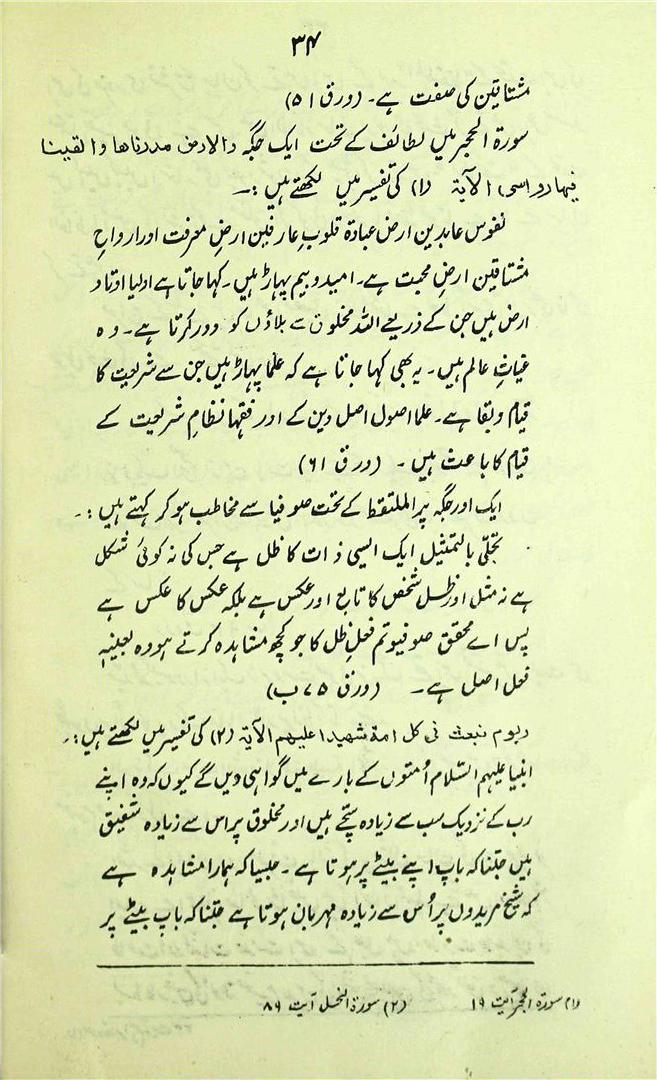 ۳۴
مشتاقین کی صفت ہے۔ (ورق ۵۱)
سورۃ الحجر میں لطائف کے تحت ایک جگہ والارض مددناھا والقینا
فیھا رواسی الآیۃ (۱) کی تفسیر میں لکھتے ہیں :۔
نفوس عابدین ارض عبادۃ قلوبِ عارفین ارضِ معرفت اور ارواحِ
مشتاقین ارضِ محبت ہے۔ امید و بیم پہاڑ ہیں۔ کہا جاتا ہے اولیا اوتاد
ارض ہیں جن کے ذریعے اللہ مخلوق سے بلاؤں کو دور کرتا ہے۔ وہ
غیاثِ عالم ہیں۔ یہ بھی کہا جاتا ہے کہ علما پہاڑ ہیں جن سے شریعت کا
قیام و بقا ہے۔ علما اصول اصل دین کے اور فقہا نظامِ شریعت کے
قیام کا باعث ہیں۔ (ورق ۶۱)
ایک اور جگہ پر الملتقط کے تحت صوفیا سے مخاطب ہو کر کہتے ہیں :۔
تجلّی بالتمثیل ایک ایسی ذات کا ظل ہے جس کی نہ کوئی شکل
ہے نہ مثل اور ظل شخص کا تابع اور عکس ہے بلکہ عکس کا عکس ہے
پس اے محقق صوفیو تم فعلِ ظل کا جو کچھ مشاہدہ کرتے ہو وہ بعینہٖ
فعل اصل ہے۔ (ورق ۷۵ ب)
ویوم نبعث فی کل امۃ شھیدا علیھم الآیۃ (۲) کی تفسیر میں لکھتے ہیں :۔
انبیا علیہم السّلام اُمتوں کے بارے میں گواہی دیں گے کیوں کہ وہ اپنے
رب کے نزدیک سب سے زیادہ سچّے ہیں اور مخلوق پر اس سے زیادہ شفیق
ہیں جتنا کہ باپ اپنے بیٹے پر ہوتا ہے۔ جیسا کہ ہمارا مشاہدہ ہے
کہ شیخ مریدوں پر اُس سے زیادہ مہربان ہوتا ہے جتنا کہ باپ بیٹے پر
(۱) سورۃ الحجر آیت ۱۹ (۲) سورۃ النحل آیت ۸۹